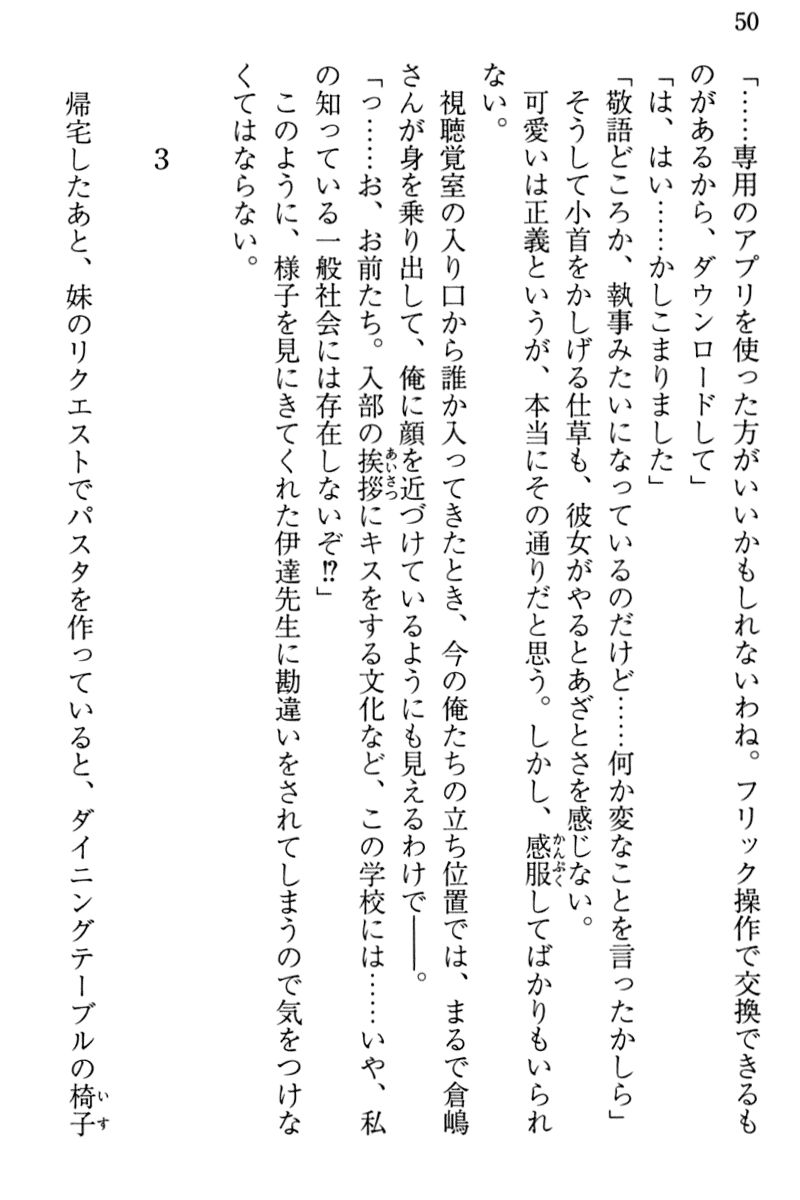 50
「……専用のアプリを使った方がいいかもしれないわね。フリック操作で交換できるも
のがあるから、ダウンロードして」
「は、はい……かしこまりました」
「敬語どころか、執事みたいになっているのだけど……何か変なことを言ったかしら」
そうして小首をかしげる仕草も、彼女がやるとあざとさを感じない。
可愛いは正義というが、本当にその通りだと思う。しかし、感服してばかりもいられ
ない。
視聴覚室の入り口から誰か入ってきたとき、今の俺たちの立ち位置では、まるで倉嶋
さんが身を乗り出して、俺に顔を近づけているようにも見えるわけで――。
「っ……お、お前たち。入部の挨拶にキスをする文化など、この学校には……いや、私
の知っている一般社会には存在しないぞ!?」
このように、様子を見にきてくれた伊達先生に勘違いをされてしまうので気をつけな
くてはならない。
3
帰宅したあと、妹のリクエストでパスタを作っていると、ダイニングテーブルの椅子